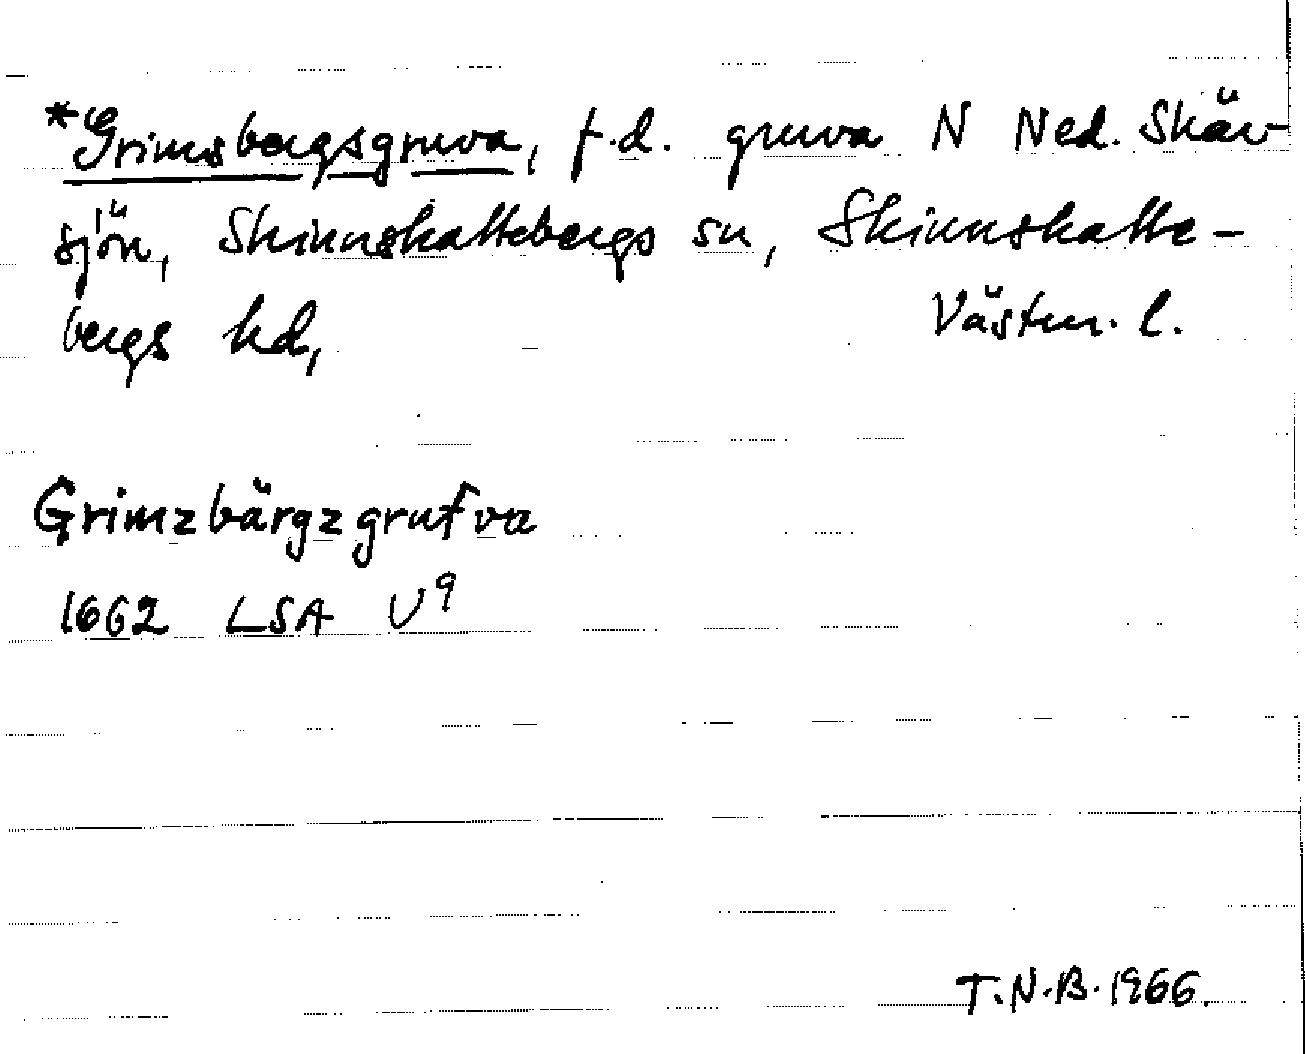 *Grimsbergsgruva, f.d. gruva N Ned. Skäv-
sjön, Skinnskattebergs sn, Skinnskatte-
bergs hd, Västm. l.
Grimzbärgzgrufva
1662 LSA U9
T.N.B. 1966.